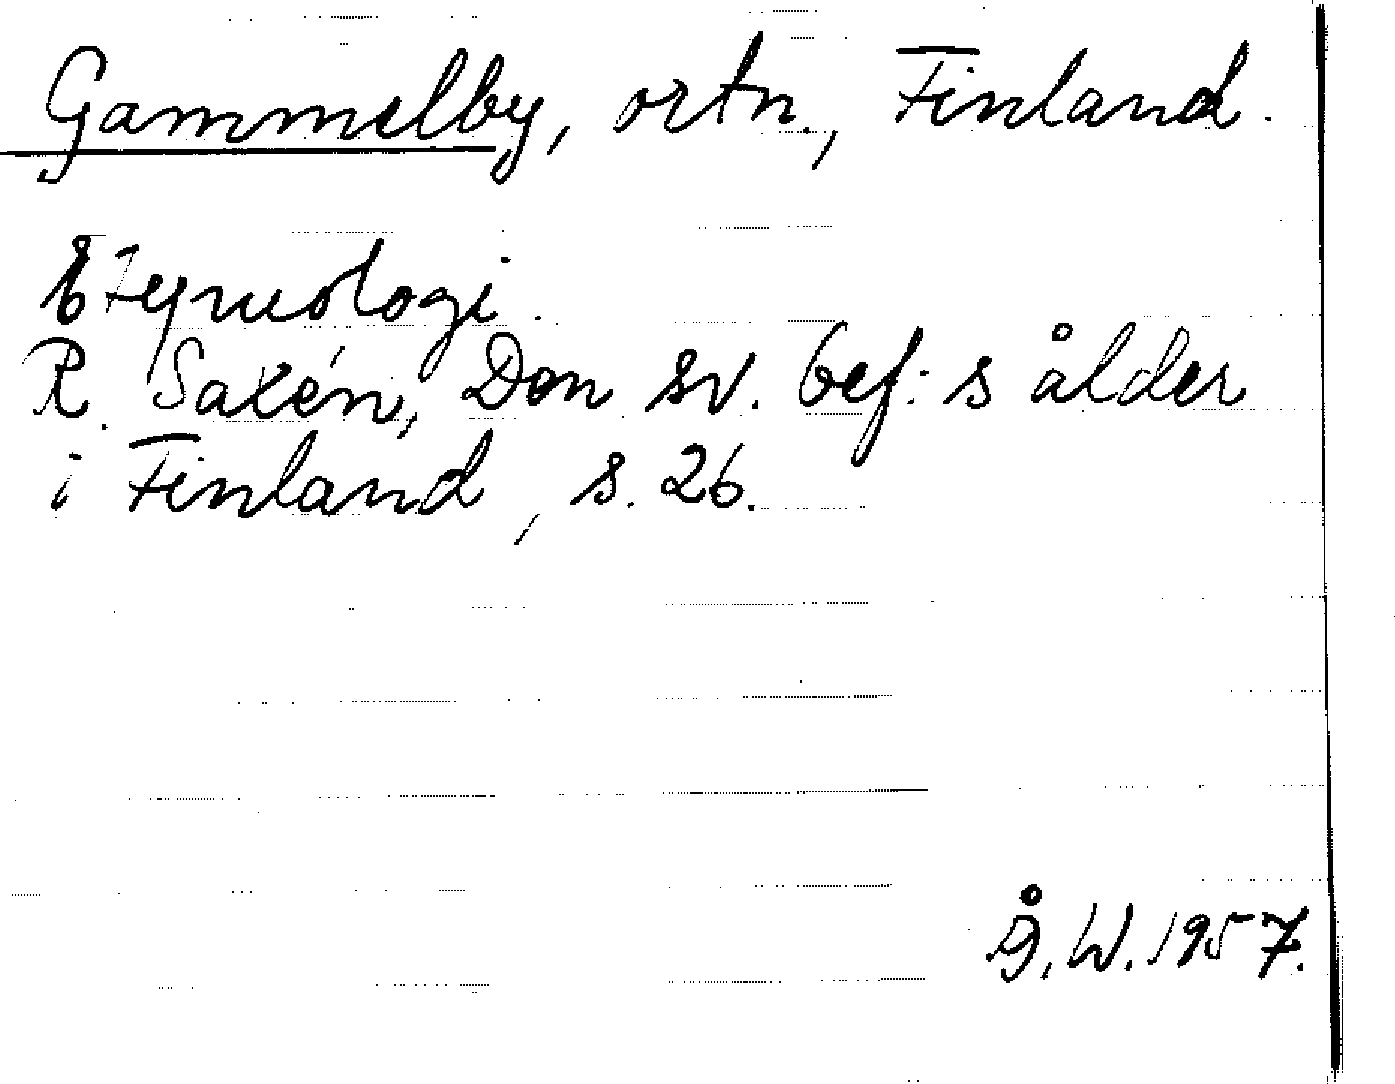 Gammelby, ortn., Finland.
Etymologi.
R. Saxén, Den sv. bef:s ålder
i Finland, s. 26.
Å. W. 1957.